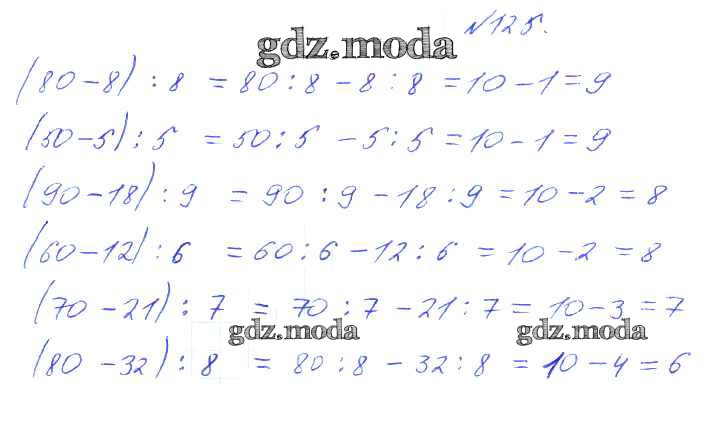 №125.
gdz.moda
(80-8) : 8 = 80 : 8 - 8 : 8 = 10 - 1 = 9
(50-5) : 5 = 50 : 5 - 5 : 5 = 10 - 1 = 9
(90-18) : 9 = 90 : 9 - 18 : 9 = 10 - 2 = 8
(60-12) : 6 = 60 : 6 - 12 : 6 = 10 - 2 = 8
(70-21) : 7 = 70 : 7 - 21 : 7 = 10 - 3 = 7
gdz.moda gdz.moda
(80-32) : 8 = 80 : 8 - 32 : 8 = 10 - 4 = 6